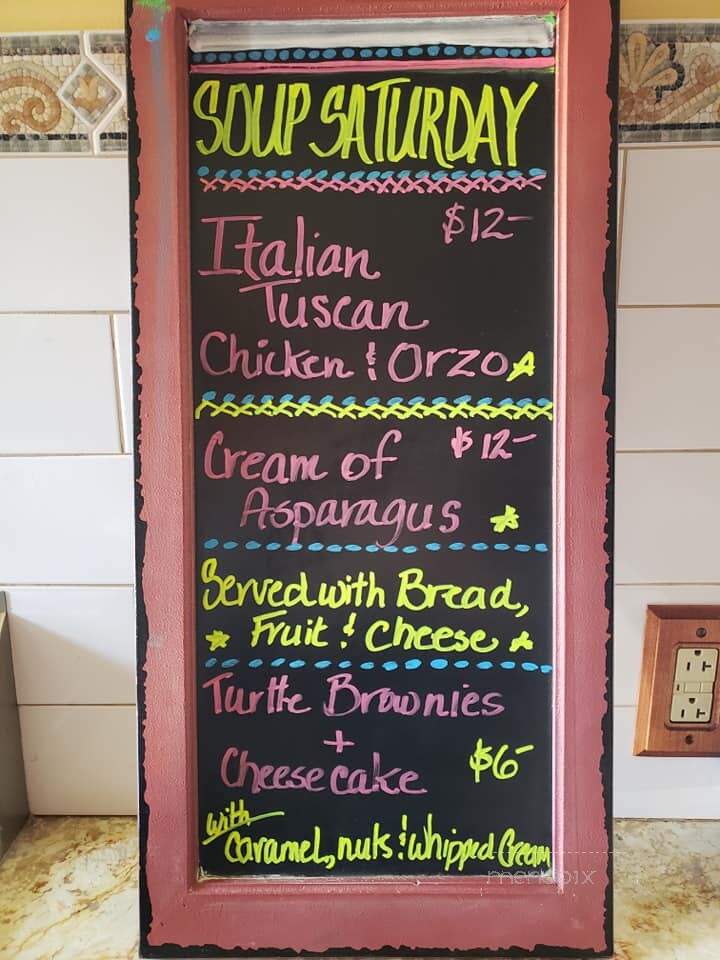 SOUP SATURDAY
$12-
Italian
Tuscan
Chicken & Orzo
Cream of $12-
Asparagus
Served with Bread,
Fruit & Cheese
Turtle Brownies
+
Cheesecake $6-
with
Caramel, nuts & Whipped Cream
menupix